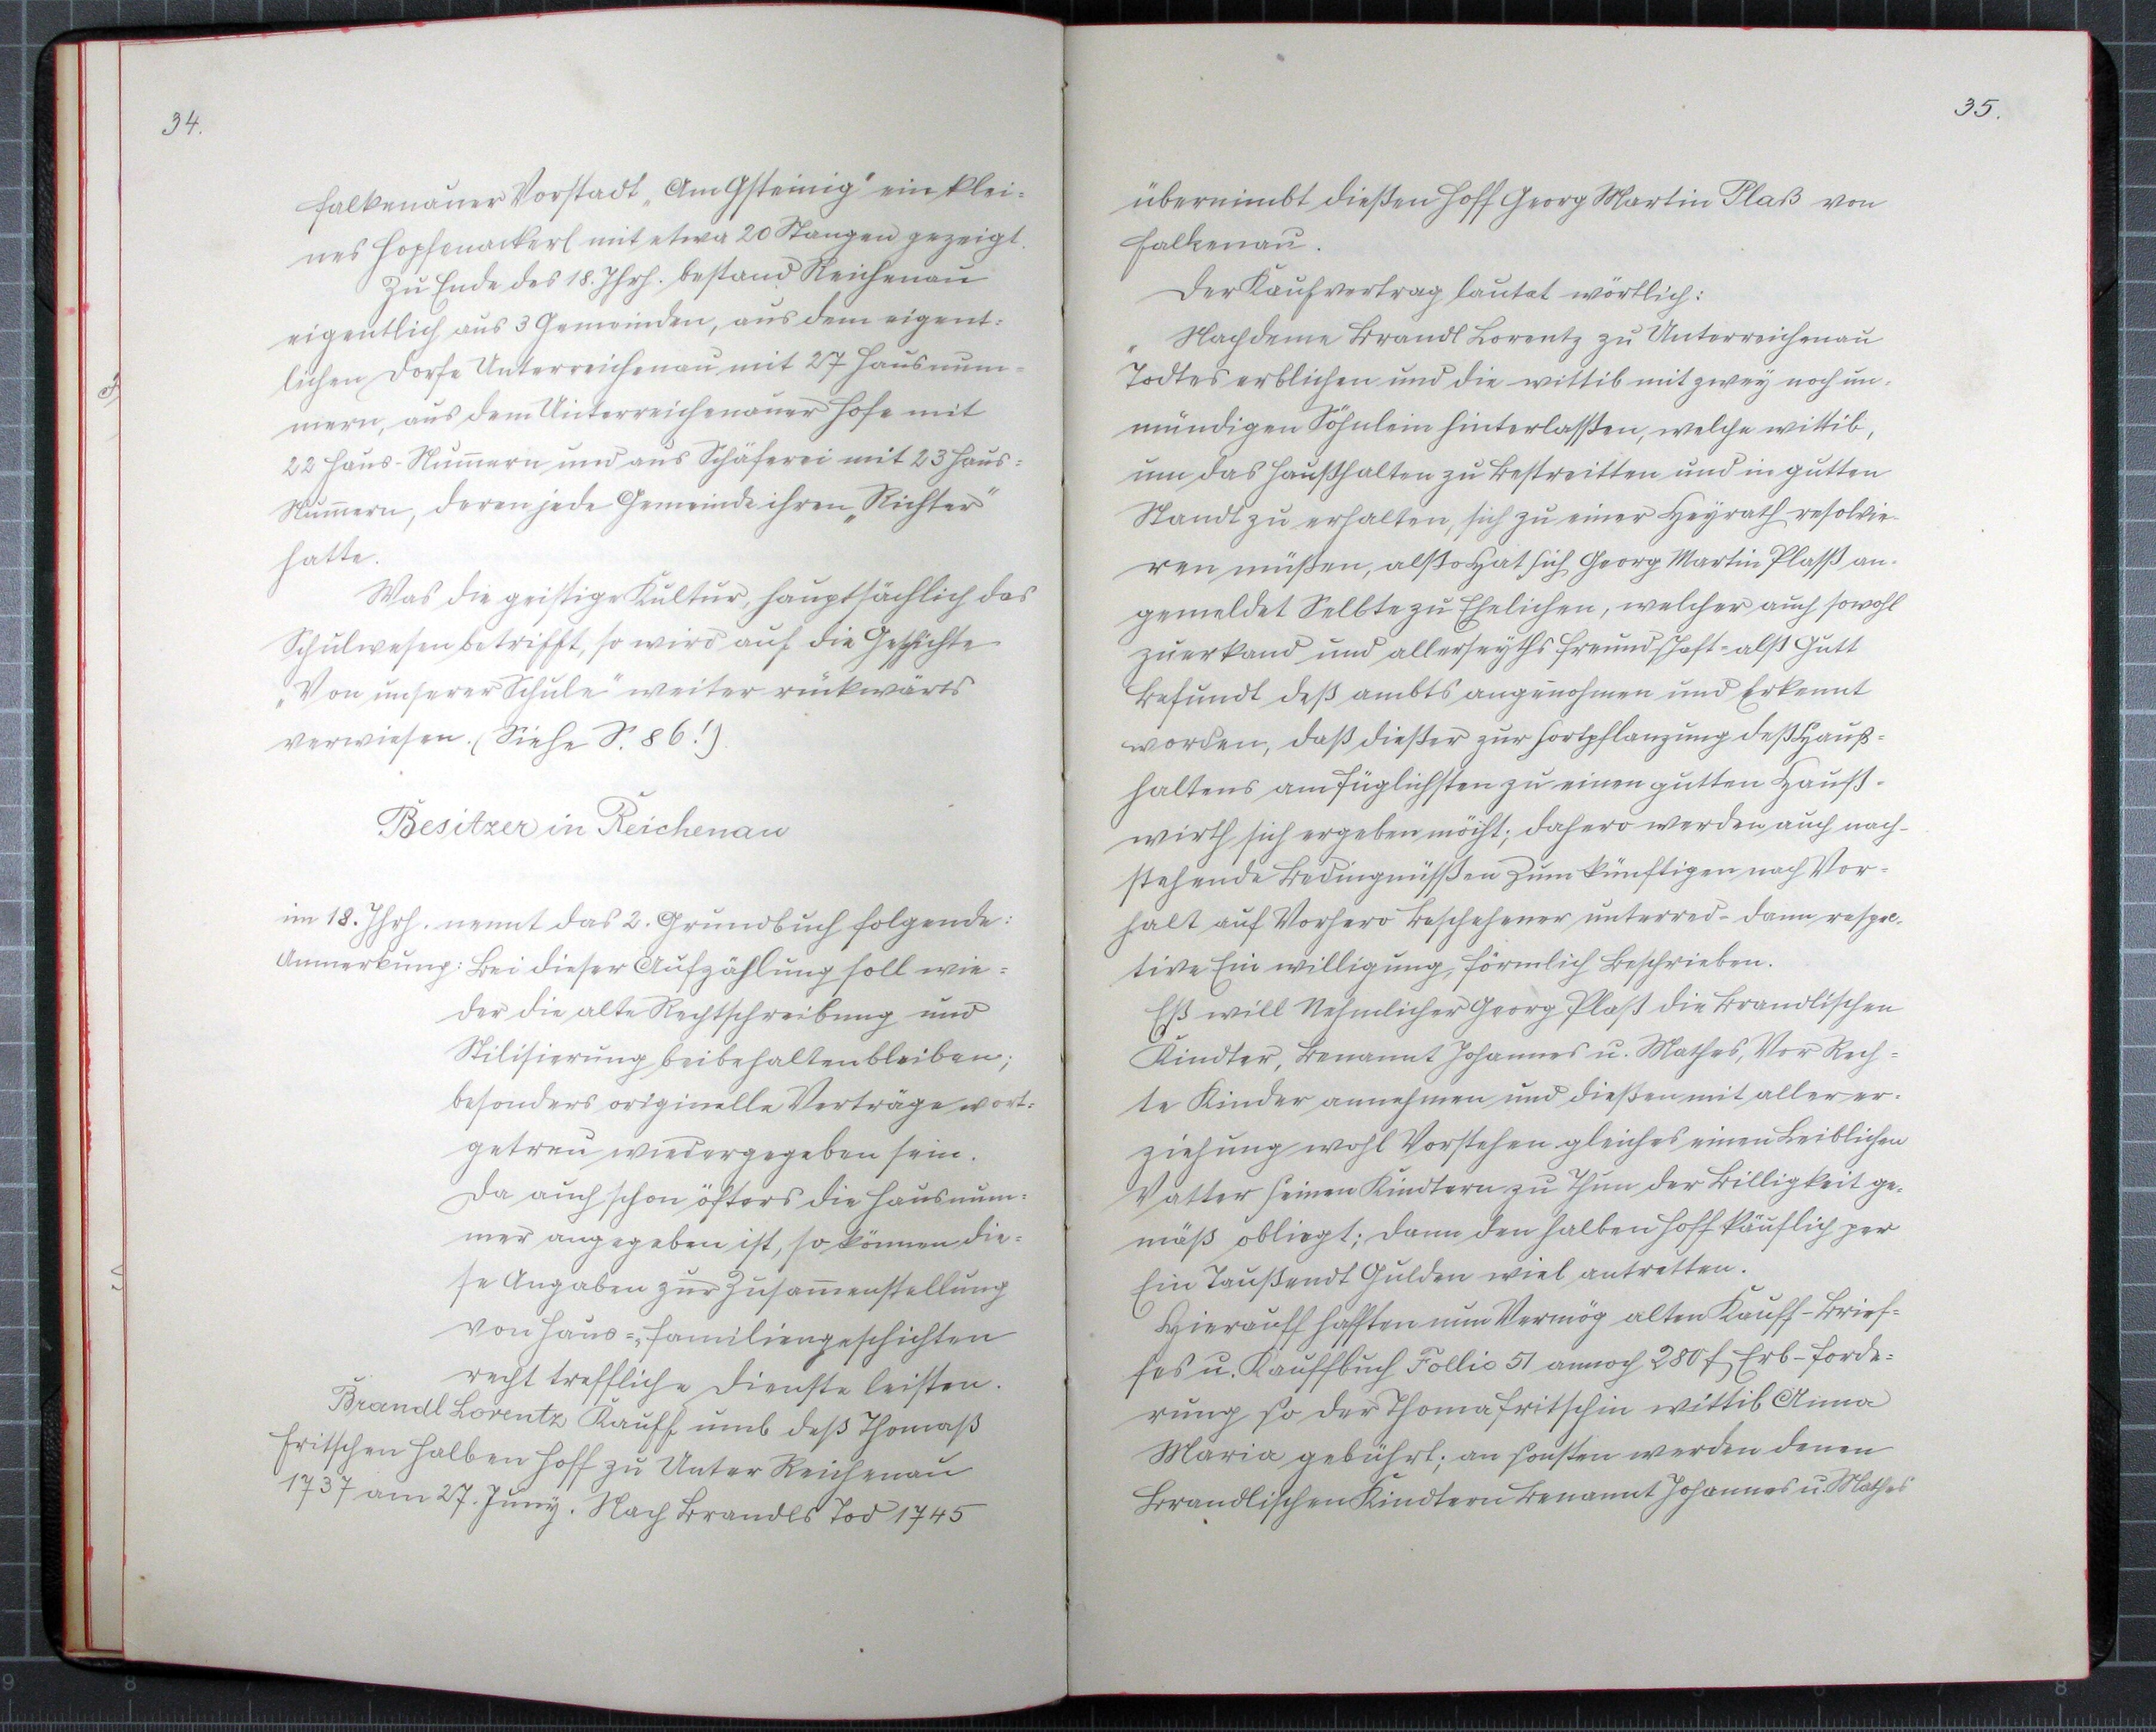 34.
Falkenauer Vorstadt „Am Gsteinig" ein klei=
nes Hopfenackerl mit etwa 20 Stangen gezeigt.
Zu Ende des 18. Jhrh. bestand Reichenau
eigentlich aus 3 Gemeinden, aus dem eigent=
lichen Dorfe Unterreichenau mit 27 Hausnum=
mern, aus dem Unterreichenauer Hofe mit
22 Haus-Num̄ern und aus Schäferei mit 23 Haus=
Num̄ern, deren jede Gemeinde ihren „Richter"
hatte.
Was die geistige Kultur, hauptsächlich das
Schulwesen betrifft, so wird auf die Geschichte
„Von unserer Schule" weiter rückwärts
verwiesen. (Siehe S. 86!)
Besitzer in Reichenau
im 18. Jhrh. nennt das 2. Grundbuch folgende:
Anmerkung: Bei dieser Aufzählung soll wie=
der die alte Rechtschreibung und
Stilisierung beibehalten bleiben;
besonders originelle Verträge wort=
getreu wiedergegeben sein.
Da auch schon öfters die Hausnum=
mer angegeben ist, so können die=
se Angaben zur Zusam̄enstellung
von Haus=, Familiengeschichten
recht treffliche Dienste leisten.
Brandl Lorentz Kauff umb deß Thomaß
Fritschen halben Hoff zu Unter Reichenau
1737 am 27. Juny. Nach Brandls Tod 1745
35.
übernimbt dießen Hoff Georg Martin Plaß von
Falkenau.
Der Kaufvertrag lautet wörtlich:
„Nachdeme Brandl Lorentz zu Unterreichenau
Todtes erblichen und die wittib mit zwey noch un=
mündigen Söhnlein hinterlassen, welche wittib,
um das Haußhalten zu Bestreitten und in gutten
Standt zu erhalten, sich zu einer Heyrath resolvie=
ren müßen, alßo Hat sich Georg Martin Plaß an=
gemeldet Selbte zu Ehelichen, welcher auch sowohl
zuerkand und allerseyths Freundschaft= alß Gutt
Befundt deß ambts angenohmen und Erkennt
worden, daß dießer zur Fortpflanzung deß Hauß=
haltens am füglichsten zu einen gutten Hauß=
wirth sich ergeben möcht; dahero werden auch nach=
stehende Bedingnüßen Zum künftigen nach Vor=
halt auf Vorhero Beschehener unterred= dann respec=
tive Ein willigung, förmlich Beschrieben.
Eß will Nehmlicher Georg Plaß die Brandlischen
Kindter, Benannt Johannes u. Mathes, Vor Rech=
te Kinder annehmen und dießen mit aller er=
ziehung wohl Vorstehen gleiches einen Leiblichen
Vatter seinen Kindtern zu Thun der Billigkeit ge=
mäß obliegt; dann den halben Hoff käuflich per
Ein Taußendt Gulden wiel antretten.
Hierauff hafften nun Vermög alten Kauff-Brief=
fes u. Kauffbuch Follio 51 annoch 280 f Erb-Forde=
rung so der Thoma Fritschin wittib Anna
Maria gebührt; an sonsten werden denen
Brandlischen Kindtern Benannt Johannes u. Mathes